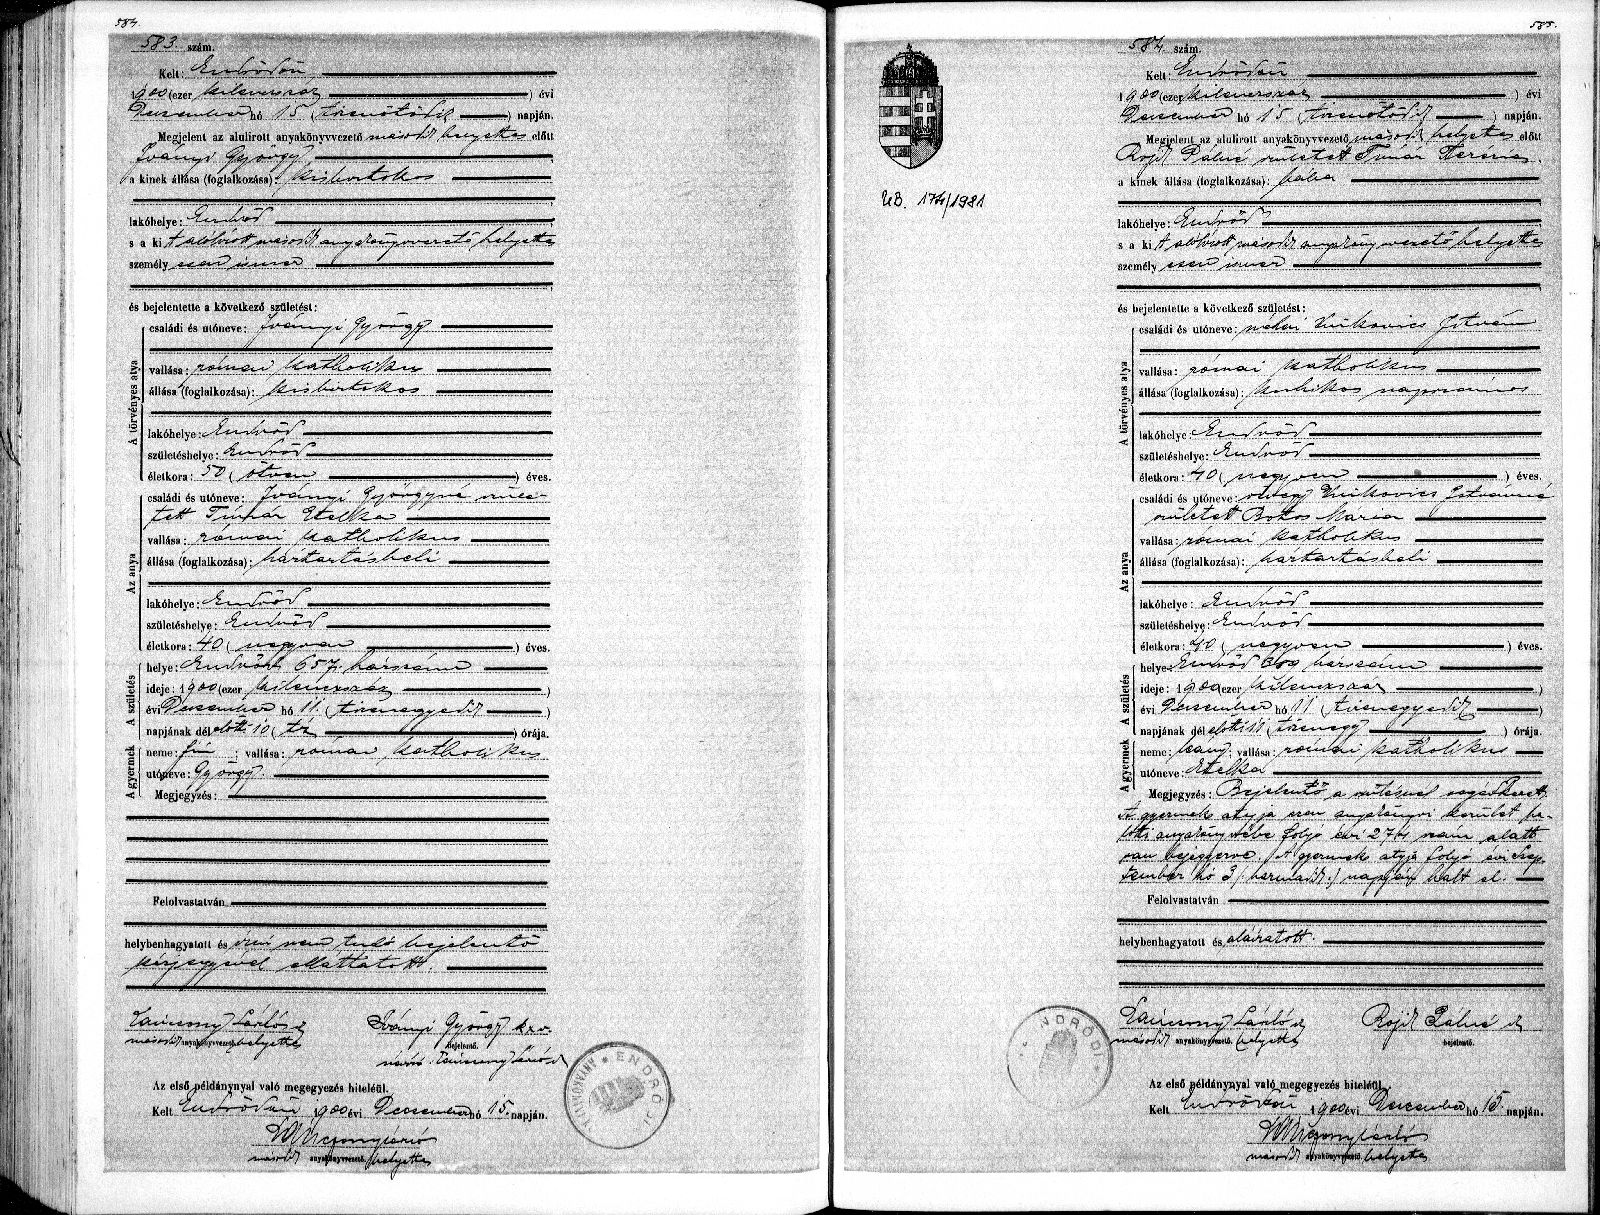 584.
583. szám.
Kelt: Endrődön
1900 (ezer kilencszáz ) évi
December hó 15 (tizenötödik ) napján.
Megjelent az alulirott anyakönyvvezető másod helyettes előtt
Iványi György,
a kinek állása (foglalkozása): kisbirtokos
lakóhelye: Endrőd
s a ki t alólirott másod anyakönyvvezető helyettes
személyesen ismer
és bejelentette a következő születést:
A törvényes atya
családi és utóneve: Iványi György
vallása: római katholikus
állása (foglalkozása): kisbirtokos
lakóhelye: Endrőd
születéshelye: Endrőd
életkora: 50 (ötven ) éves.
Az anya
családi és utóneve: Iványi Györgyné szüle-
tett Timár Etelka
vallása: római katholikus
állása (foglalkozása): háztartásbeli
lakóhelye: Endrőd
születéshelye: Endrőd
életkora: 40 (negyven ) éves.
A születés
helye: Endrőd 657. házszám
ideje: 1900 (ezer kilencszáz )
évi December hó 11. (tizenegyedik )
napjának dél előtti 10 (tíz ) órája.
A gyermek
neme: fiú ; vallása: római katholikus
utóneve: György.
Megjegyzés:
Felolvastatván
helybenhagyatott és írni nem tudó bejelentő
kézjegyével elláttatott.
másod anyakönyvvezető. helyettes
Iványi György
bejelentő.
ENDRŐDI
Az első példánynyal való megegyezés hiteléül.
Kelt Endrődön 1900 évi December hó 15. napján.
másod anyakönyvvezető. helyettes
UB. 174/1981
585.
584. szám.
Kelt: Endrődön
1900 (ezer kilencszáz ) évi
December hó 15 (tizenötödik ) napján.
Megjelent az alulirott anyakönyvvezető másod helyettes előtt
Rojik Pálné született Timár Terézia.
a kinek állása (foglalkozása): bába
lakóhelye: Endrőd
s a ki t alólirott másod anyakönyvvezető helyettes
személyesen ismer
és bejelentette a következő születést:
A törvényes atya
családi és utóneve: néhai István
vallása: római katholikus
állása (foglalkozása): kubikos napszámos
lakóhelye: Endrőd
születéshelye: Endrőd
életkora: 40 (negyven ) éves.
Az anya
családi és utóneve: özvegy Istvánné
született Mária
vallása: római katholikus
állása (foglalkozása): háztartásbeli
lakóhelye: Endrőd
születéshelye: Endrőd
életkora: 40 (negyven ) éves.
A születés
helye: Endrőd házszám
ideje: 1900 (ezer kilencszáz )
évi December hó 11 (tizenegyedik )
napjának dél előtti 11 (tizenegy ) órája.
A gyermek
neme: leány; vallása: római katholikus
utóneve: Etelka
Megjegyzés: Bejelentő a szülésnél segédkezett.
A gyermek atyja ezen anyakönyvi kerület ha-
lotti anyakönyvébe folyó évi 274 szám alatt
van bejegyezve. A gyermek atyja folyó évi Szep-
tember hó 3 (harmadik) napján halt el.
Felolvastatván
helybenhagyatott és aláiratott.
másod anyakönyvvezető. helyettes
Rojik Pálné
bejelentő.
ENDRŐDI
Az első példánynyal való megegyezés hiteléül.
Kelt Endrődön 1900 évi December hó 15. napján.
másod anyakönyvvezető. helyettes